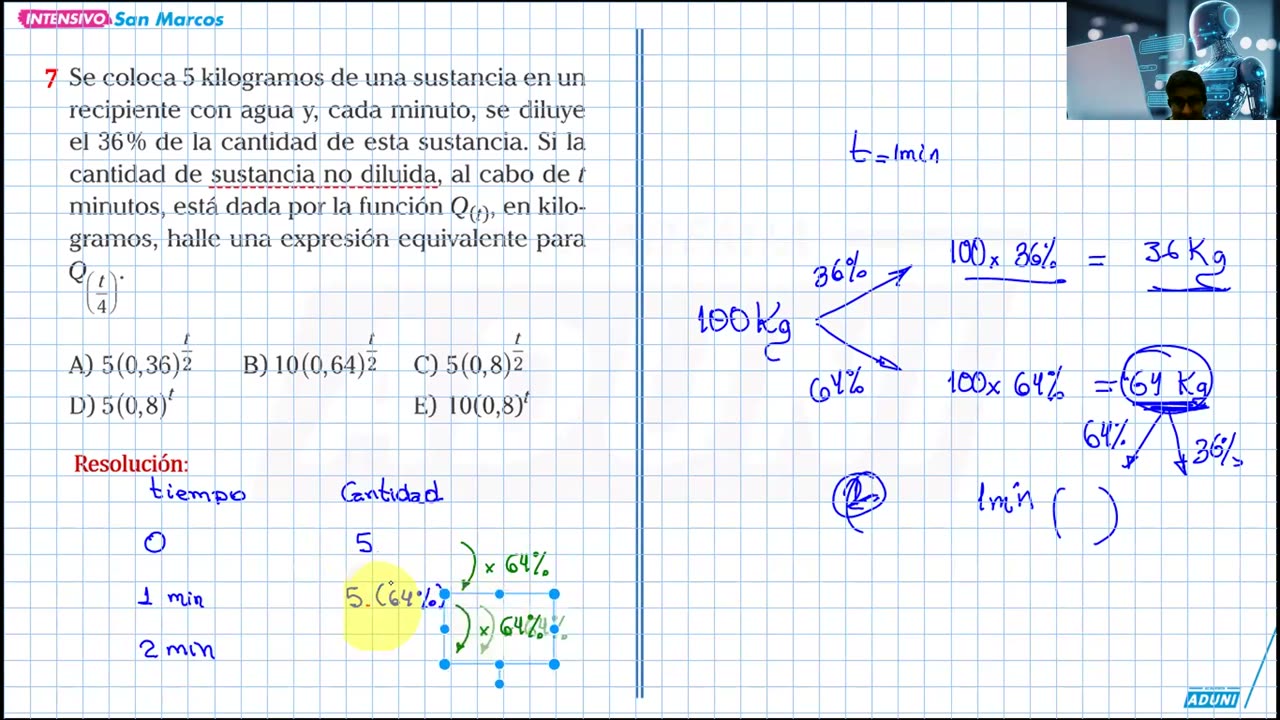 INTENSIVO San Marcos
7 Se coloca 5 kilogramos de una sustancia en un
recipiente con agua y, cada minuto, se diluye
el 36% de la cantidad de esta sustancia. Si la
cantidad de sustancia no diluida, al cabo de t
minutos, está dada por la función Q(t), en kilo-
gramos, halle una expresión equivalente para
Q(t/4).
A) 5(0,36)^(t/2) B) 10(0,64)^(t/2) C) 5(0,8)^(t/2)
D) 5(0,8)^t E) 10(0,8)^t
Resolución:
tiempo Cantidad
0 5
x 64%
1 min 5.(64%)
x 64%
2 min
t = 1min
36% 100 x 36% = 36 Kg
100 Kg
64% 100 x 64% = 64 Kg
64% 36%
1min ( )
ADUNI